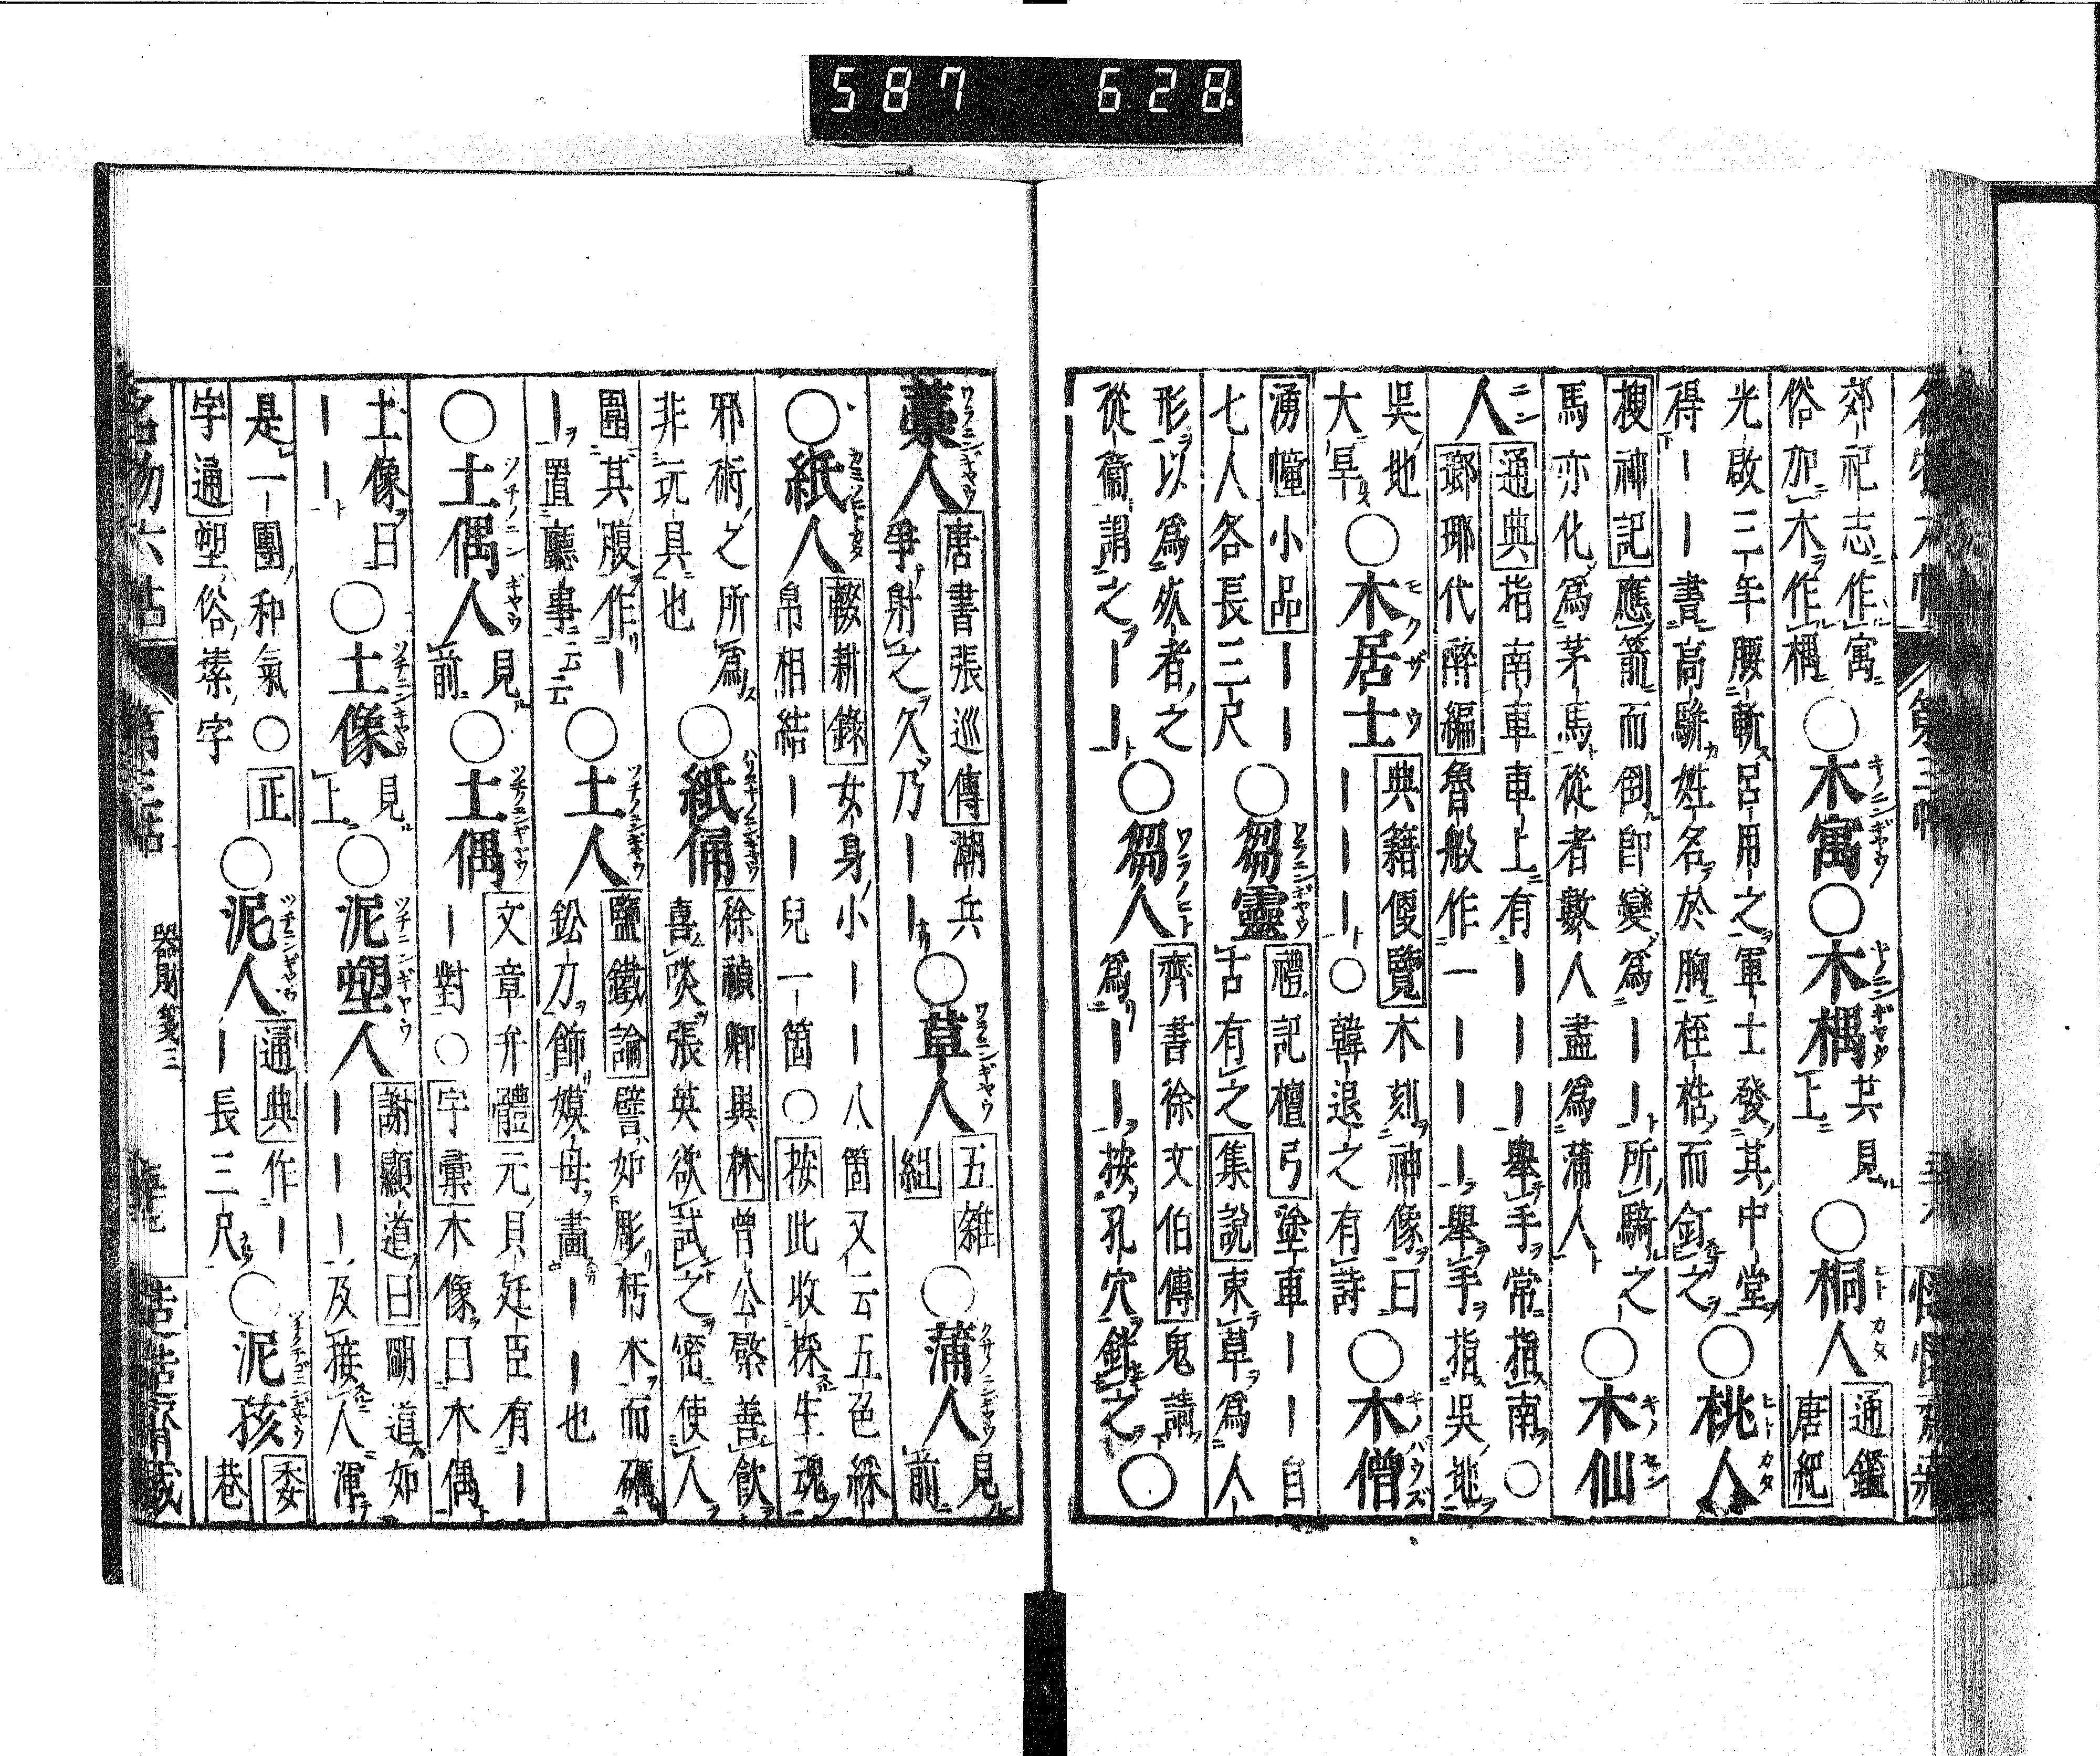 587 628
郊祀志作寓
俗加木作楀 ○木寓○木楀 其見上 ○桐人 通鑑唐紀
光啟三年腰斬呂用之軍士發其中堂
得｜｜書高駢姓名於胸桎梏而釘之 ○桃人
搜神記應箭而倒即變爲｜｜所騎之
馬亦化爲茅馬從者數人盡爲蒲人 ○木仙
人 通典指南車車上有｜｜｜舉手常指南○
瑯琊代醉編魯般作一｜｜｜舉手指吳地
吳地大旱 ○木居士 典籍便覽木刻神像曰
｜｜｜○韓退之有詩 ○木僧
湧幢小品｜｜
七人各長三尺 ○芻靈 禮記檀弓塗車｜｜自
古有之集說束草爲人
形以爲從者之
從衞謂之｜｜ ○芻人 齊書徐文伯傳鬼請
爲｜｜按孔穴針之 ○
藁人 唐書張巡傳潮兵
爭射之久乃｜｜ ○草人 五雜組 ○蒲人 見前
○紙人 輟耕錄女身小｜｜八箇又云五色綵
帛相結｜｜兒一箇○按此收採生魂
邪術之所爲
非玩具也 ○紙俑 徐禎卿與林曾公檠善飮
喜啖張英欲試之密使人
圍其腹作｜
｜置廳事云云 ○土人 鹽鐵論譬如彫朽木而礪
鈆刀飾嫫母畫｜｜也
○土偶人 見前 ○土偶 文章弁體元貝廷臣有｜
｜對○字彙木像曰木偶
土像曰
｜｜ ○土像 見上 ○泥塑人 謝顯道曰明道如
｜｜｜及接人渾
是一團和氣○正
字通塑俗㙛字 ○泥人 通典作｜
｜長三尺 ○泥孩 委巷
名物六帖 第三帖 器財箋三